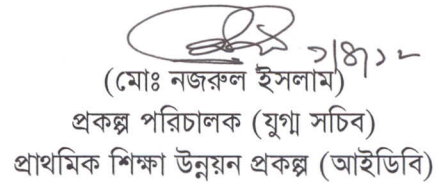 (মোঃ নজরুল ইসলাম)
প্রকল্প পরিচালক (যুগ্ম সচিব)
প্রাথমিক শিক্ষা উন্নয়ন প্রকল্প (আইডিবি)